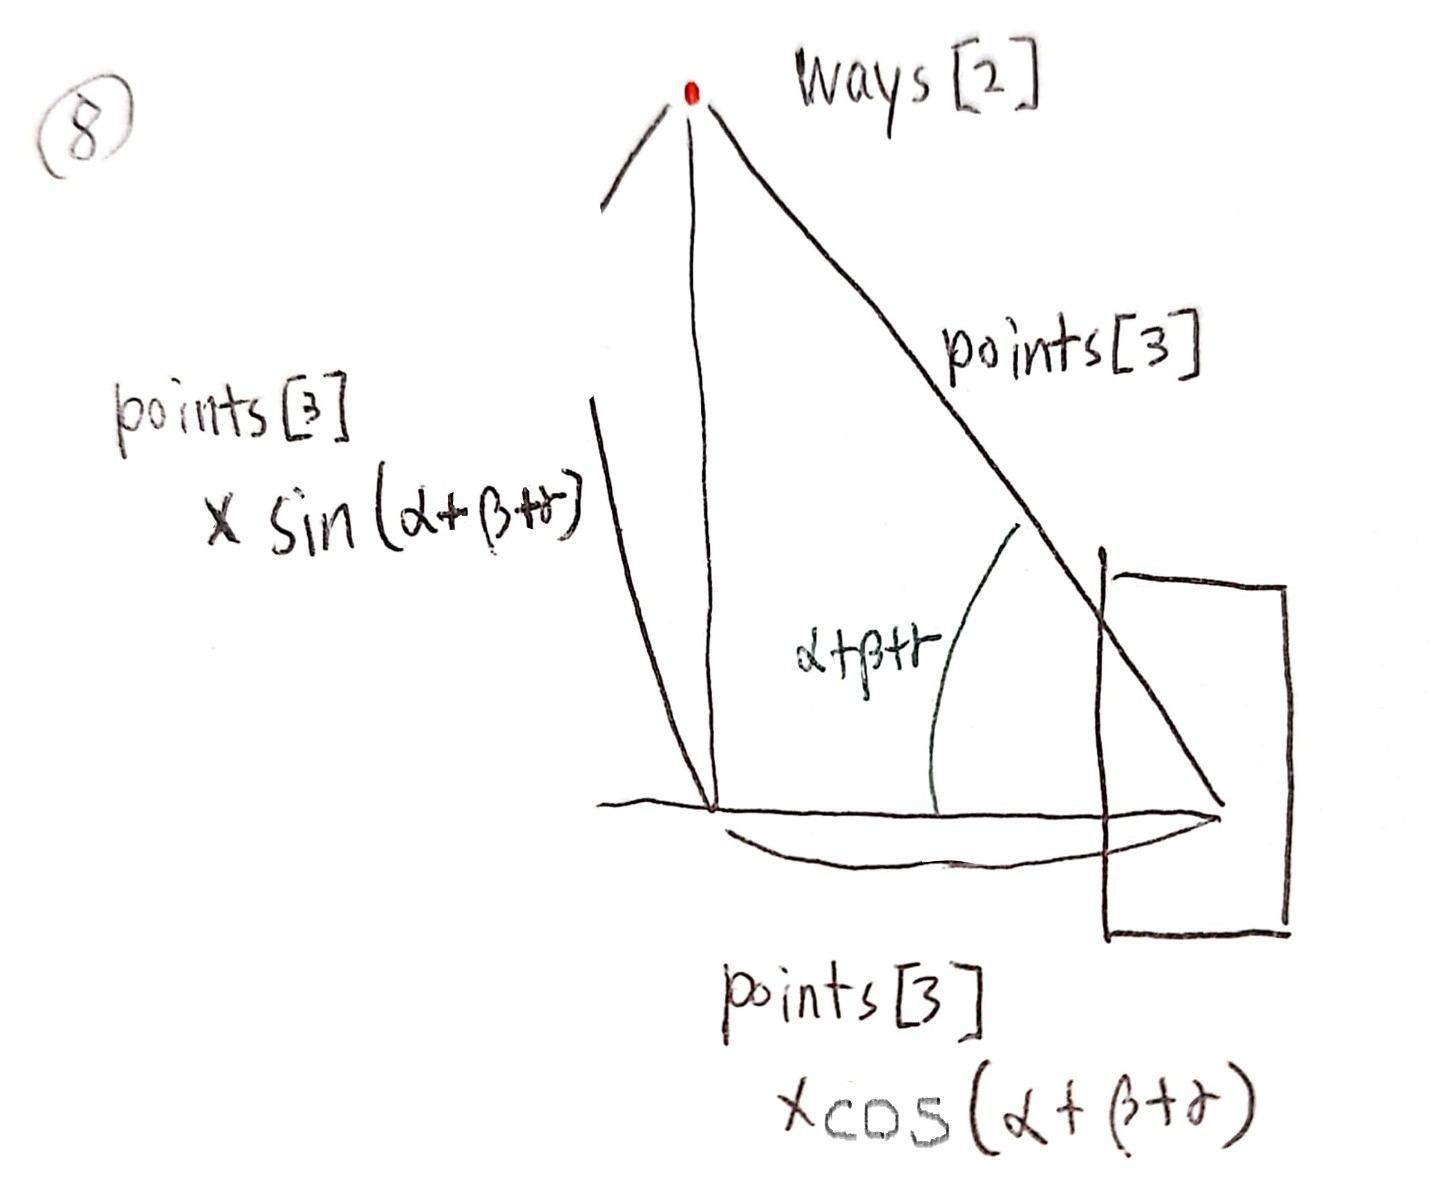 ⑧
ways[2]
points[3]
points[3]
× sin(α+β+γ)
α+β+γ
points[3]
×cos(α+β+γ)